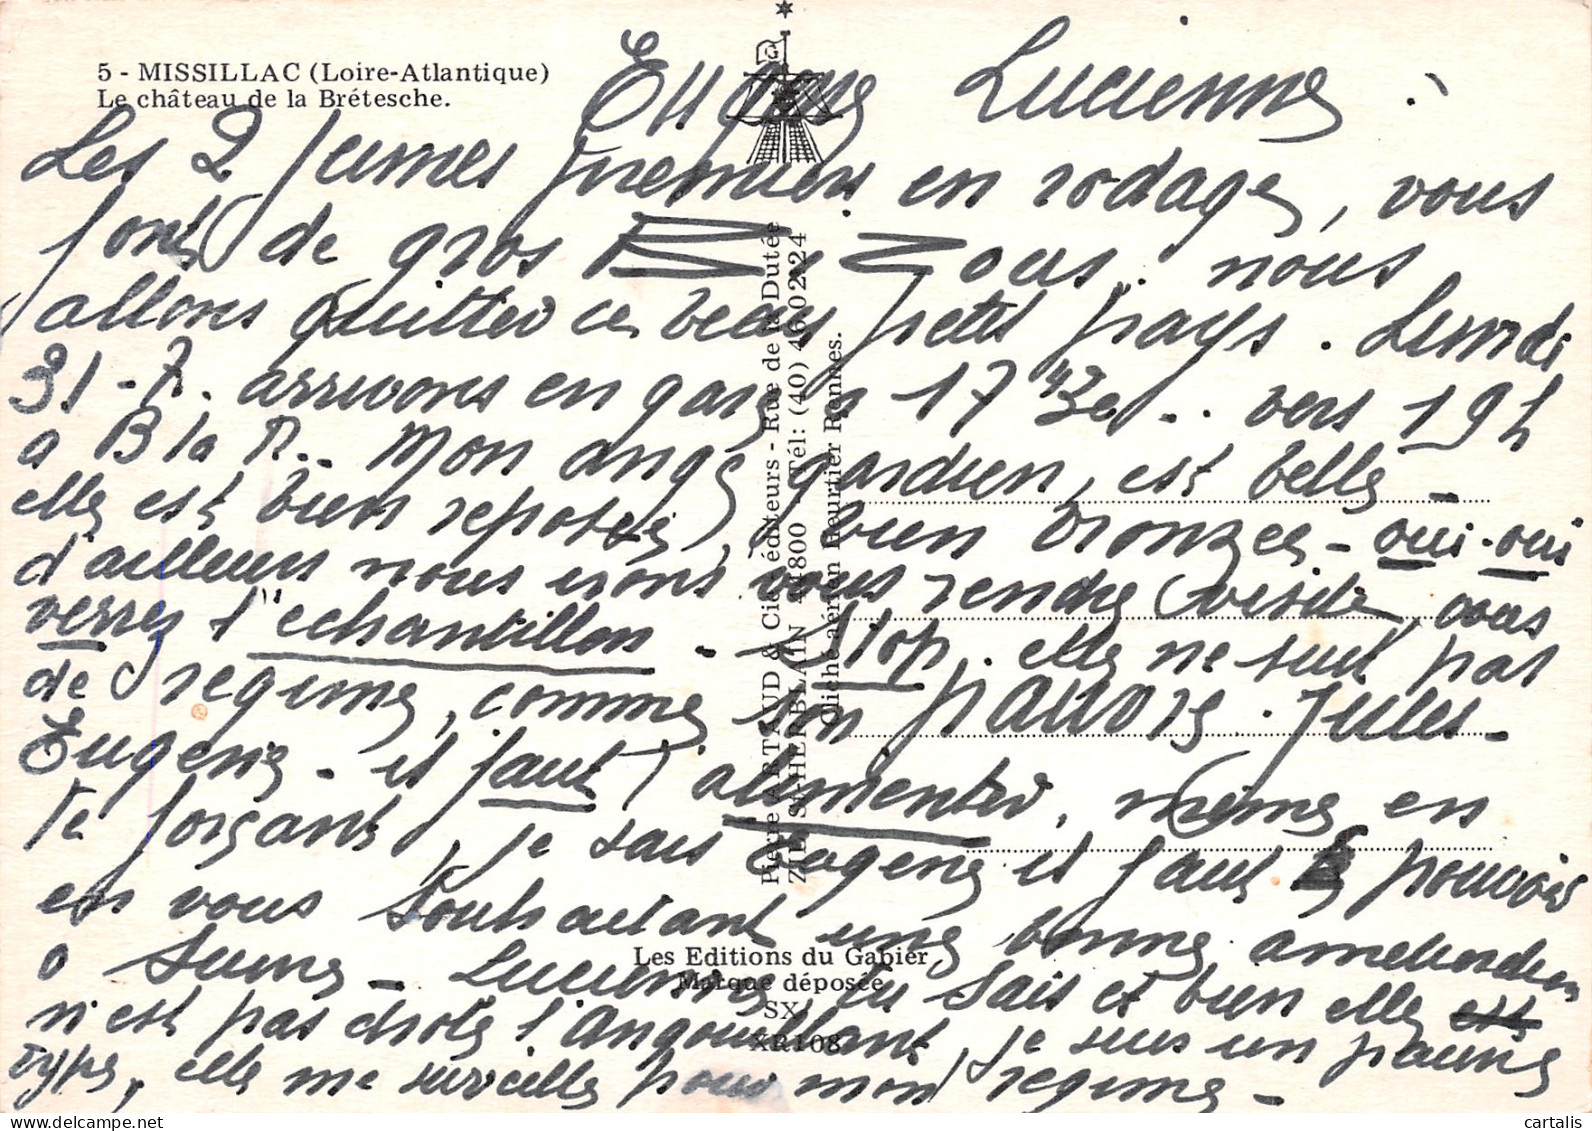 5 - MISSILLAC (Loire-Atlantique)
Le château de la Brétesche.
Eugène Lucienne.
Les 2 jeunes premiers en rodage, vous
font de gros BBy Zous. nous
allons quitter ce beau petit pays. Lundi
31-7. arrivons en gare 17 43 .. vers 19h
a B la R.. Mon ange gardien, est belle -
elle est bien reposée, bien bronzee - oui-oui
d'ailleurs nous irons vous rendre visite, vous
verrez l'echantillon. - Stop. elle ne suit pas
de regime, comme son pauvre Jules -
Eugene - il faut t'alimenter, même en
te forçant, je sais Eogene il faut pouvoir
en vous souhaitant une bonne amelioration
a Suzne - Lucienne, tu sais et bien elle
n'est pas drole l'Angouillant, je suis un pauvre
type, elle me surveille pour mon regime -
Pierre ARTAUD & Cie éditeurs - Rue de la Dutée
Z.I.L. St-HERBLAIN 44800 Tél: (40) 46.02.24
Cliché aérien Heurtier Rennes.
Les Editions du Gabier
Marque déposée
SX
XR108
cartalis